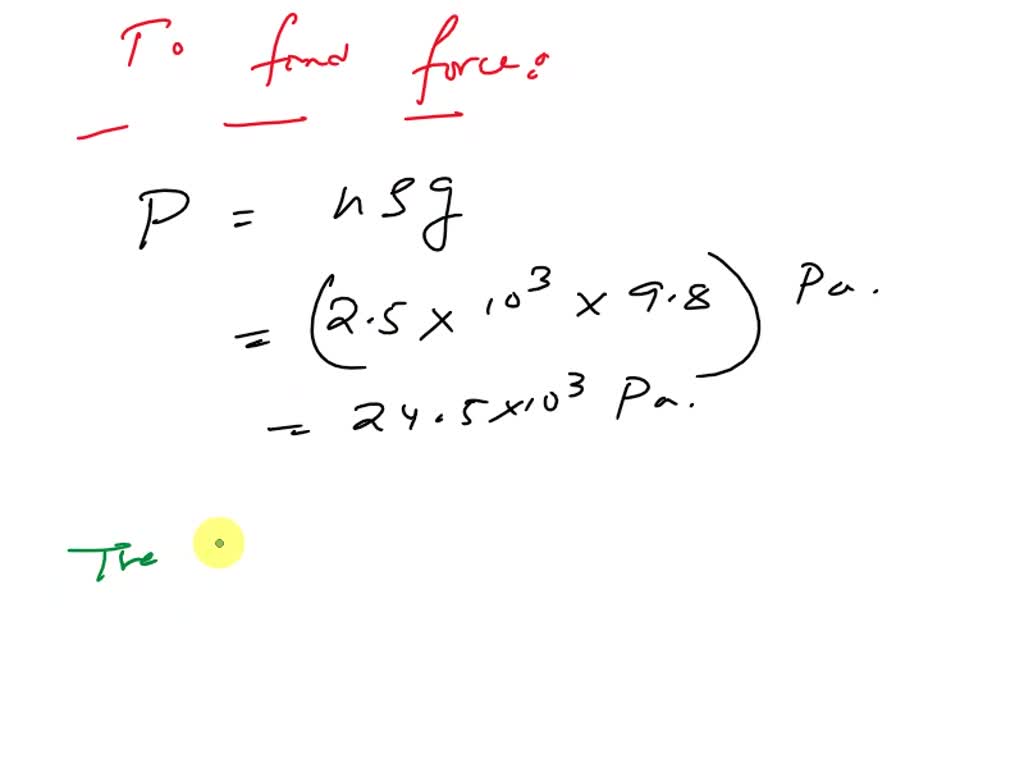 To find force:
P = hρg
= (2.5 × 10³ × 9.8) Pa.
= 24.5×10³ Pa.
The